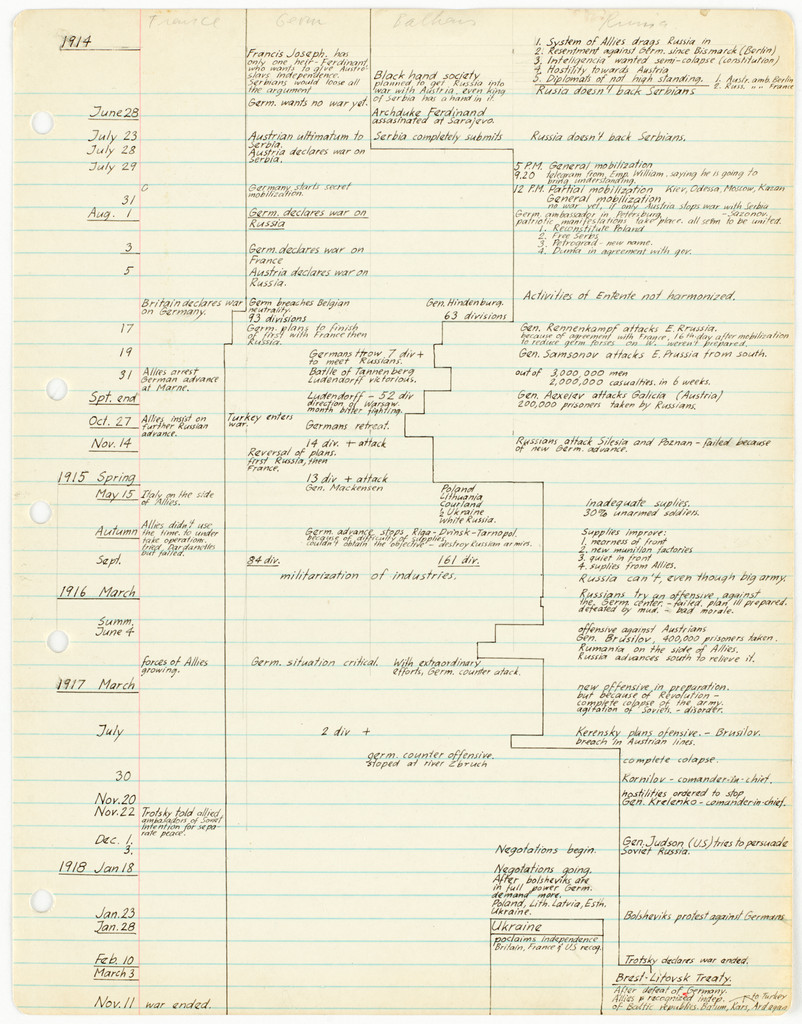 France Germ Balkans Russia
1914
Francis Joseph. has
only one heir-Ferdinand,
who wants to give Austro-
slavs independence.
Serbians would loose all
the argument
Germ. wants no war yet.
Black hand society
planned to get Russia into
war with Austria, even king
of Serbia has a hand in it.
1. System of Allies drags Russia in
2. Resentment against Germ. since Bismarck (Berlin)
3. Inteligencia wanted semi-colapse (constitution)
4. Hostility towards Austria
5. Diplomats of not high standing. 1. Austr. amb. Berlin
2. Russ. " " France
Rusia doesn't back Serbians
June 28
Archduke Ferdinand
assasinated at Sarajevo.
July 23
Austrian ultimatum to
Serbia.
Serbia completely submits
Russia doesn't back Serbians.
July 28
Austria declares war on
Serbia.
July 29
5 P.M. General mobilization
9.20 telegram from Emp. William. saying he is going to
bring understanding.
12 P.M. Partial mobilization Kiev, Odessa, Moscow, Kazan
31
Germany starts secret
mobilization.
General mobilization,
no war yet, if only Austria stops war with Serbia
Aug. 1
Germ. declares war on
Russia
Germ. ambassador in Petersburg. - Sazonov.
patriotic manifestations take place. all seem to be united.
1. Reconstitute Poland
2. Free Serbs
3. Petrograd - new name.
4. Duma in agreement with gov.
3
Germ. declares war on
France
5
Austria declares war on
Russia.
Britain declares war
on Germany.
Germ breaches Belgian
neutrality.
93 divisions
Gen. Hindenburg.
63 divisions
Activities of Entente not harmonized.
17
Germ. plans to finish
of first with France then
Russia.
Gen. Rennenkampf attacks E. Prussia.
because of agreement with France, 16th day after mobilization
to reduce germ forses on W. weren't prepared.
19
Germans throw 7 div +
to meet Russians.
Gen. Samsonov attacks E. Prussia from south.
31
Allies arrest
German advance
at Marne.
Batlle of Tannenberg
Ludendorff victorious.
out of 3,000,000 men
2,000,000 casualties. in 6 weeks.
Spt. end
Ludendorff - 52 div
direction of Warsaw.
month bitter fighting.
Gen. Aexejev attacks Galicia (Austria)
200,000 prisoners taken by Russians.
Oct. 27
Allies insist on
further Russian
advance.
Turkey enters
war.
Germans retreat.
Nov. 14
14 div. + attack
Reversal of plans.
first Russia, then
France.
Russians attack Silesia and Poznan - failed because
of new Germ. advance.
1915 Spring
13 div + attack
Gen. Mackensen
May 15
Italy on the side
of Allies.
Poland
Lithuania
Courland
½ Ukraine
White Russia.
Inadequate suplies.
30% unarmed soldiers.
Autumn
Allies didn't use
the time, to under
take operation.
tried Dardanelles
but failed.
Germ. advance stops Riga-Dvinsk-Tarnopol.
because of difficulty of supplies.
couldn't obtain the objective - destroy Russian armies.
Supplies improve:
1. nearness of front
2. new munition factories
3. quiet in front
4. suplies from Allies.
Sept.
84 div.
161 div.
militarization of industries.
Russia can't, even though big army.
1916 March
Russians try an offensive, against
the Germ. center. - failed, plan ill prepared.
defeated by mud. - bad morale.
Summ.
June 4
offensive against Austrians
Gen. Brusilov, 400,000 prisoners taken.
Rumania on the side of Allies.
Russia advances south to relieve it.
forces of Allies
growing.
Germ. situation critical.
With extraordinary
efforts, Germ. counter atack.
1917 March
new offensive in preparation.
but because of Revolution -
complete colapse of the army.
agitation of Soviets. - disorder.
July
2 div +
Kerensky plans ofensive. - Brusilov.
breach in Austrian lines.
germ. counter offensive.
stoped at river Zbruch
complete colapse.
30
Kornilov - comander-in-chief.
Nov. 20
hostilities ordered to stop
Gen. Krelenko - comander-in-chief.
Nov. 22
Trotsky told allied,
ambasadors of Soviet
Intention for sepa-
rate peace.
Dec. 1.
3.
Negotations begin.
Gen. Judson (U.S) tries to persuade
Soviet Russia.
1918 Jan 18
Negotations going.
After bolsheviks are
in full power Germ.
demand more.
Poland, Lith. Latvia, Esth.
Ukraine.
Jan. 23
Bolsheviks protest against Germans
Jan. 28
Ukraine
poclaims independence
Britain, France & U.S. recog.
Feb. 10
Trotsky declares war ended.
March 3
Brest-Litovsk Treaty.
After defeat of Germany.
Allies recognized indep. to Turkey
of Baltic republics. Batum, Kars, Ardagan
Nov. 11 war ended.